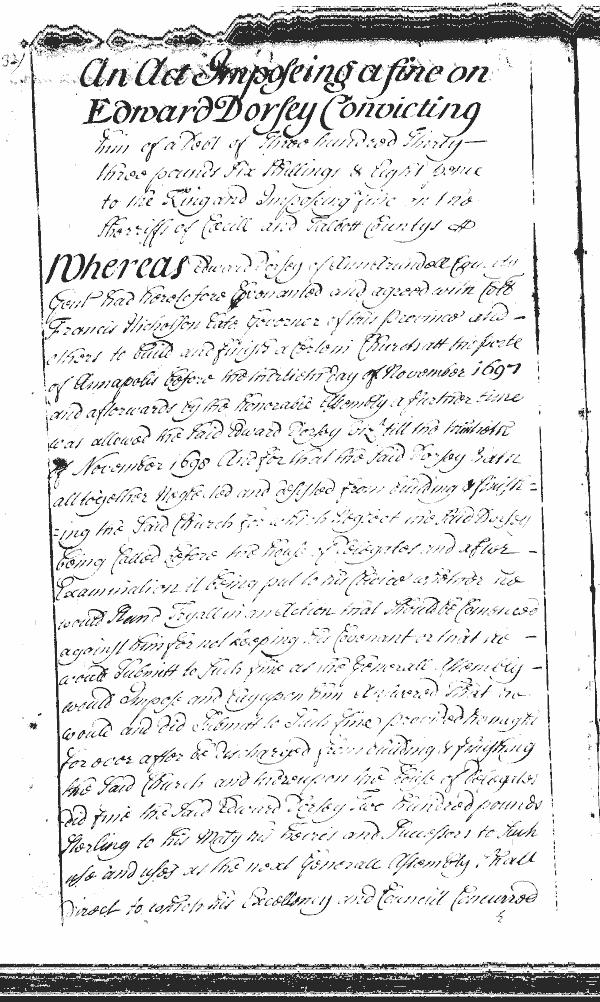 32
An Act Imposeing a fine on
Edward Dorsey Convicting
him of a Debt of Three hundred Thirty
three pounds Six Shillings & Eight pence
to the King and Imposing fine on the
Sherriffs of Cecill and Talbott Countys
Whereas Edward Dorsey of Ann Arundell County
Gent had heretofore Covenanted and agreed with Coll
Francis Nicholson late Governor of this province and
others to build and finish a certain Church att the porte
of Annapolis before the thirtieth day of November 1697
and afterwards by the honorable Assembly a further time
was allowed the Said Edward Dorsey viz till the thirtieth
of November 1698 And for that the Said Dorsey hath
alltogether neglected and desisted from building & finish=
=ing the Said Church for which neglect the Said Dorsey
being Called before the house of Delegates and after
Examination it being put to his Choice whether he
would Stand Tryall in an Action that Should be Comenced
against him for not keeping his Covenant or that he
would Submitt to Such fine as the Generall Assembly
would Impose and lay upon him Answered That he
would and did Submitt to Such fine provided he might
for ever after be discharged from building & finishing
the Said Church and thereupon the house of delegates
did fine the Said Edward Dorsey Two hundred pounds
Sterling to his Maty his heires and Successors to Such
use and uses as the next Generall Assembly Shall
Direct to which his Excellency and Councill Concurred